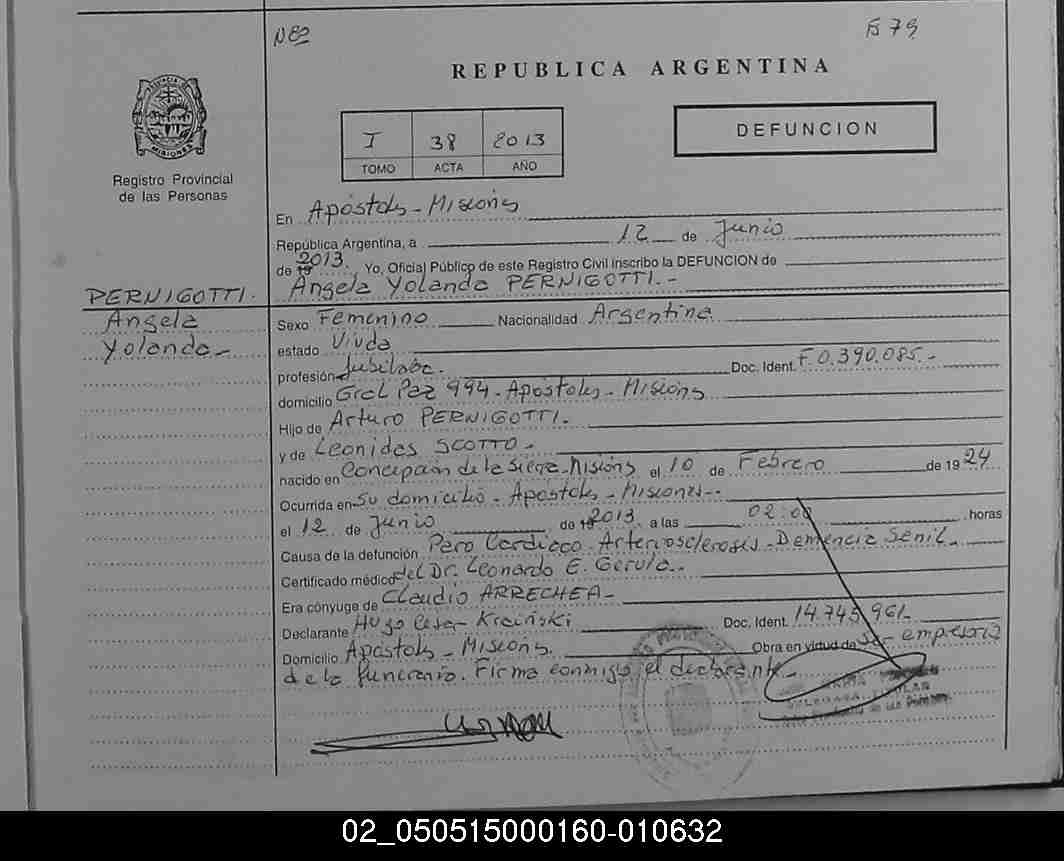 N82
F 79
REPUBLICA ARGENTINA
I 38 2013
TOMO ACTA AÑO
DEFUNCION
PROVINCIA DE
MISIONES
Registro Provincial
de las Personas
En Apóstoles - Misiones
República Argentina, a 12 de Junio
de 19 2013. Yo, Oficial Público de este Registro Civil inscribo la DEFUNCION de
Angela Yolanda PERNIGOTTI. -
PERNIGOTTI.
Angela
Yolanda -
Sexo Femenino Nacionalidad Argentina
estado Viuda
profesión Jubilada. Doc. Ident. F. 0.390.085. -
domicilio Gral Paz 994 - Apóstoles - Misiones
Hijo de Arturo PERNIGOTTI.
y de Leonidas SCOTTO -
nacido en Concepción de la Sierra - Misiones el 10 de Febrero de 19 24
Ocurrida en Su domicilio - Apóstoles - Misiones -
el 12 de Junio de 19 2013 a las 02:00 horas
Causa de la defunción Paro Cardíaco Arteriosclerosis - Demencia Senil -
Certificado médico del Dr. Leonardo E. Gerula -
Era cónyuge de Claudio ARRECHEA -
Declarante Hugo Cesar Doc. Ident. 14.745.961 -
Domicilio Apóstoles - Misiones. Obra en virtud de ser empresario
de la funeraria. Firma conmigo el declarante -
02_050515000160-010632